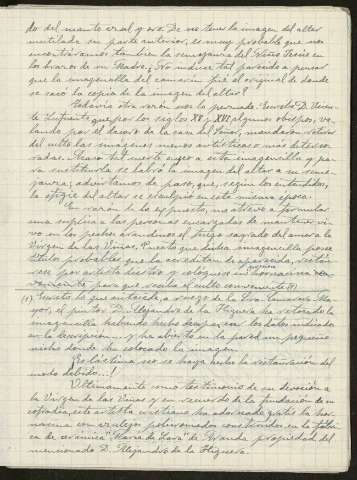 do del manto real y oro. De no tener la imagen del altar
mutilada su parte anterior, es muy probable que nos
encontráramos también la semejanza del Niño Jesús en
los brazos de su Madre. ¿No induce tal parecido a pensar
que la imagencilla del camarín fué el original de donde
se sacó la copia de la imagen del altar?
Todavía otra razón nos lo persuade. Enseña D. Vicen-
te Lafuente que por los siglos XV y XVI algunos obispos, ve-
lando por el decoro de la casa del Señor, mandaron retirar
del culto las imágenes menos artísticas o más deterio-
radas. Acaso tal suerte cupo a esta imagencilla y pa-
ra sustituirla se labró la imagen del altar a su seme-
janza; advirtamos de paso, que, según los entendidos,
la efigie del altar se esculpió en esta misma época.
En razón de lo expuesto, me atrevo a formular
una súplica a las personas encargadas de mantener vi-
vo en los pechos arandinos el fuego sagrado del amor a la
Virgen de las Viñas. Puesto que dicha imagencilla posee
títulos probables que la acreditan de aparecida, restáu-
rese por artista diestro y colóquese en hornacina
conveniente para que reciba el culto conveniente (1)
(1) Escrito lo que antecede, a ruego de la Sra. Camarera Ma-
yor, el pintor D. Alejandro de la Higuera ha restaurado la
imagencilla habiendo hecho desaparecer los datos indicados
en la descripción... y ha abierto en la pared un pequeño
nicho donde ha colocado la imagen.
Es lástima no se haya hecho la restauración del
modo debido...!
Ultimamente como testimonio de su devoción a
la Virgen de las Viñas y en recuerdo de la fundación de su
cofradía, este artista cristiano ha adornado gratis la hor-
nacina con azulejos policromados construidos en la fábri-
ca de cerámica de Aranda propiedad del
mencionado D. Alejandro de la Higuera.